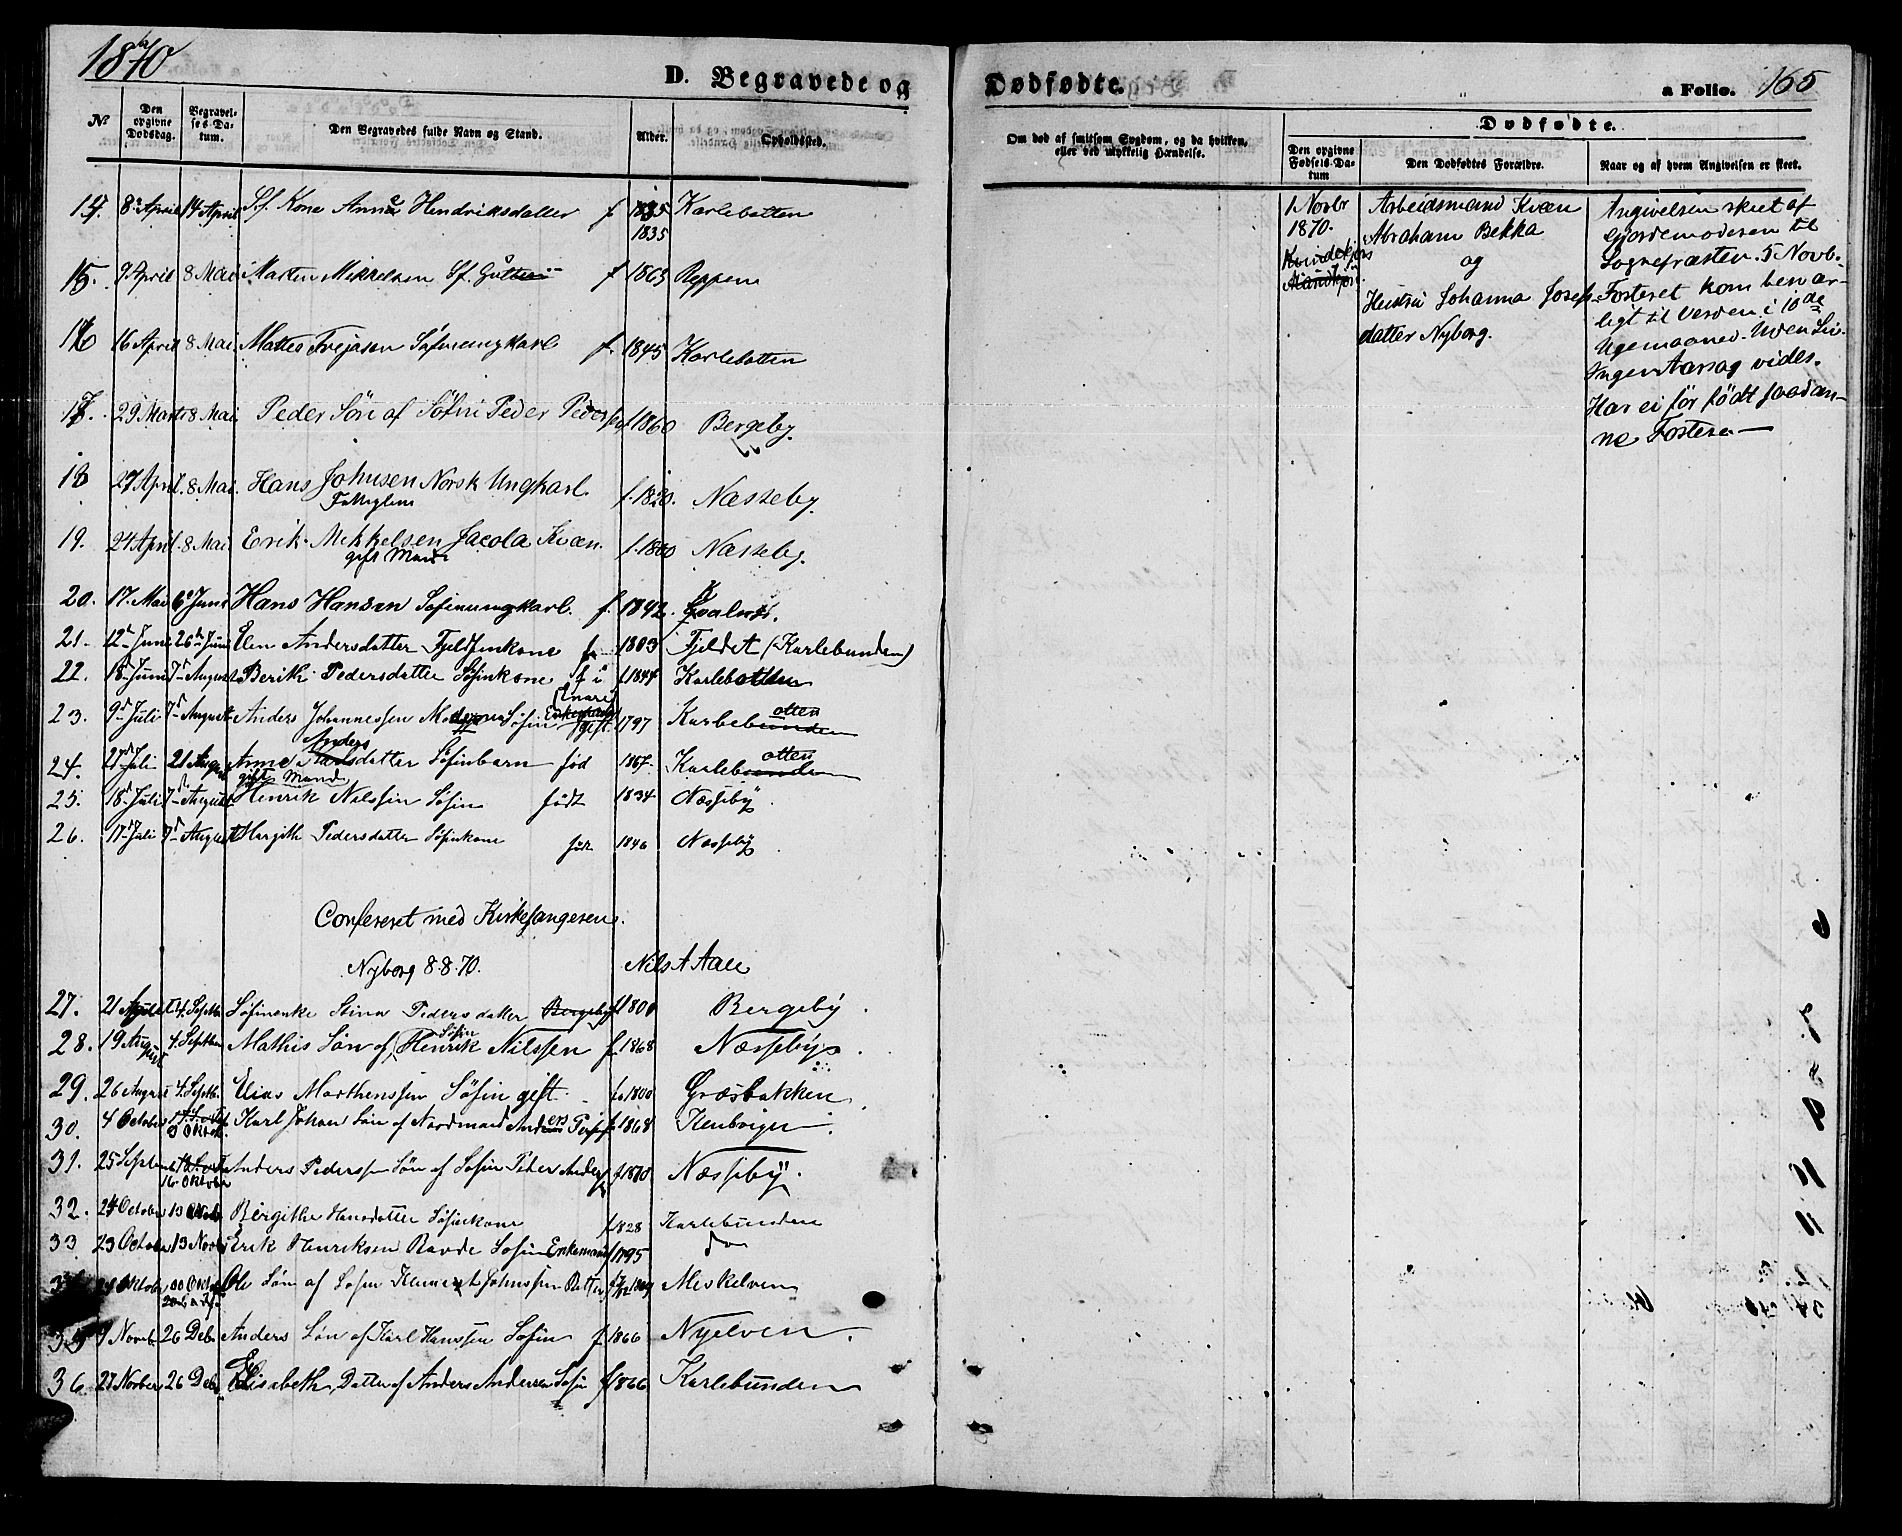 1870
D. Begravede og Dødfødte. a Folio. 165
No
Den opgivne Dødsdag.
Begravelses Datum.
Den Begravedes fulde Navn og Stand.
Alder.
Opholdssted.
Om død af smitsom Sygdom, og da hvilken, eller ved ulykkelig Hændelse.
Dødfødte.
Den opgivne Fødsels-Datum
Den Dødfødtes Forældre.
Naar og af hvem Angivelsen er skeet.
14. 8 April 14 April Sf. Kone Anna Hendriksdatter f 1835 Karlebotten
1835
15. 9 April 8 Mai Marten Mikkelsen Sf. f 1863 Reppen
16 16 April 8 Mai Mattes Søfinungkarl f. 1845 Karlebotten
17. 29 Marts 8 Mai Peder Søn af Søfin Peder Pedersen f 1860 Bergeby
18 27 April 8 Mai. Hans Johnsen Norsk Ungkarl f. 1820. Næsseby
19. 24 April 8 Mai Erik Mikkelsen Jacola Kvæn f. 1800 Næsseby.
gift Mand
20. 17. Mai 6 Juni Hans Hansen Søfinungkarl. f. 1842.
21. 12 Juni 26 Juni Elen Andersdatter Fjeldfinkone f. 1803 Fjeldet (Karlebunden)
22. 18 Juni 7 August Berith Pedersdatter Søfinkone f 1844 Karlebotten
(Enare)
23. 9 Juli 7 August Anders Johannessen Søfin gift. 1797 Karlebunden
otten
Anders
24. 21 Juli 21 Aug Anne datter Søfinbarn fød 1867. Karlebunden
otten
gift Mand
25. 18 Juli 7 August Henrik Nilssen Søfin født 1834 Næsseby
26. 17 Juli 7 August Margith Pedersdatter Søfinkone født 1846 Næsseby
Confereret med Kirkesangeren.
Nyborg 8.8.70. Nils A Aall
27. 21 August 4. Septbr Søfinenke Stina Pedersdatter Bergeby f 1800 Bergeby
Søfin
28. 19 August 4. Septbr Mathis Søn af Henrik Nilssen f. 1868 Næsseby.
29. 26 August 4. Septbr. Elias Morthenssen Søfin gift f. 1800 Græsbakken
30. 4 October Karl Johan Søn af Nordmand Anders f 1868
31. 25 Septbr Anders Pederssen Søn af Søfin Peder Anders f 1870 Næsseby.
16. Oktober
32. 24 October 13 Novbr Birgithe Hansdatter Søfinkone f 1828 Karlebunden
33 23 October 13 Novbr Erik Henriksen Ravde Søfin Enkemand f 1795 do
Oktober Ole Søn af Søfin Klemet Johnssen Meskelven
35 9 Novbr 26 Debr Anders Søn af Karl Hanssen Søfin f. 1866 Nyelven
36. 27 Novber 26 Debr Elisabeth, Datter af Anders Andersen Søfin f 1866 Karlebunden
1 Novbr
1870.
Kvindekjøn
Mandkjøn
Arbeidsmand Kvæn
Abraham Bekka
og
Hustru Johanna Josefs-
datter Nyborg.
Angivelsen skeet af
Gjordemoderen til
Sognepræsten. 5 Novb.
Fosteret kom benar-
ligt til Verden i 10de
Ugemaaned. Uden Liv.
Ingen Aarsag vides.
Har ei før født saadan-
ne Fostere